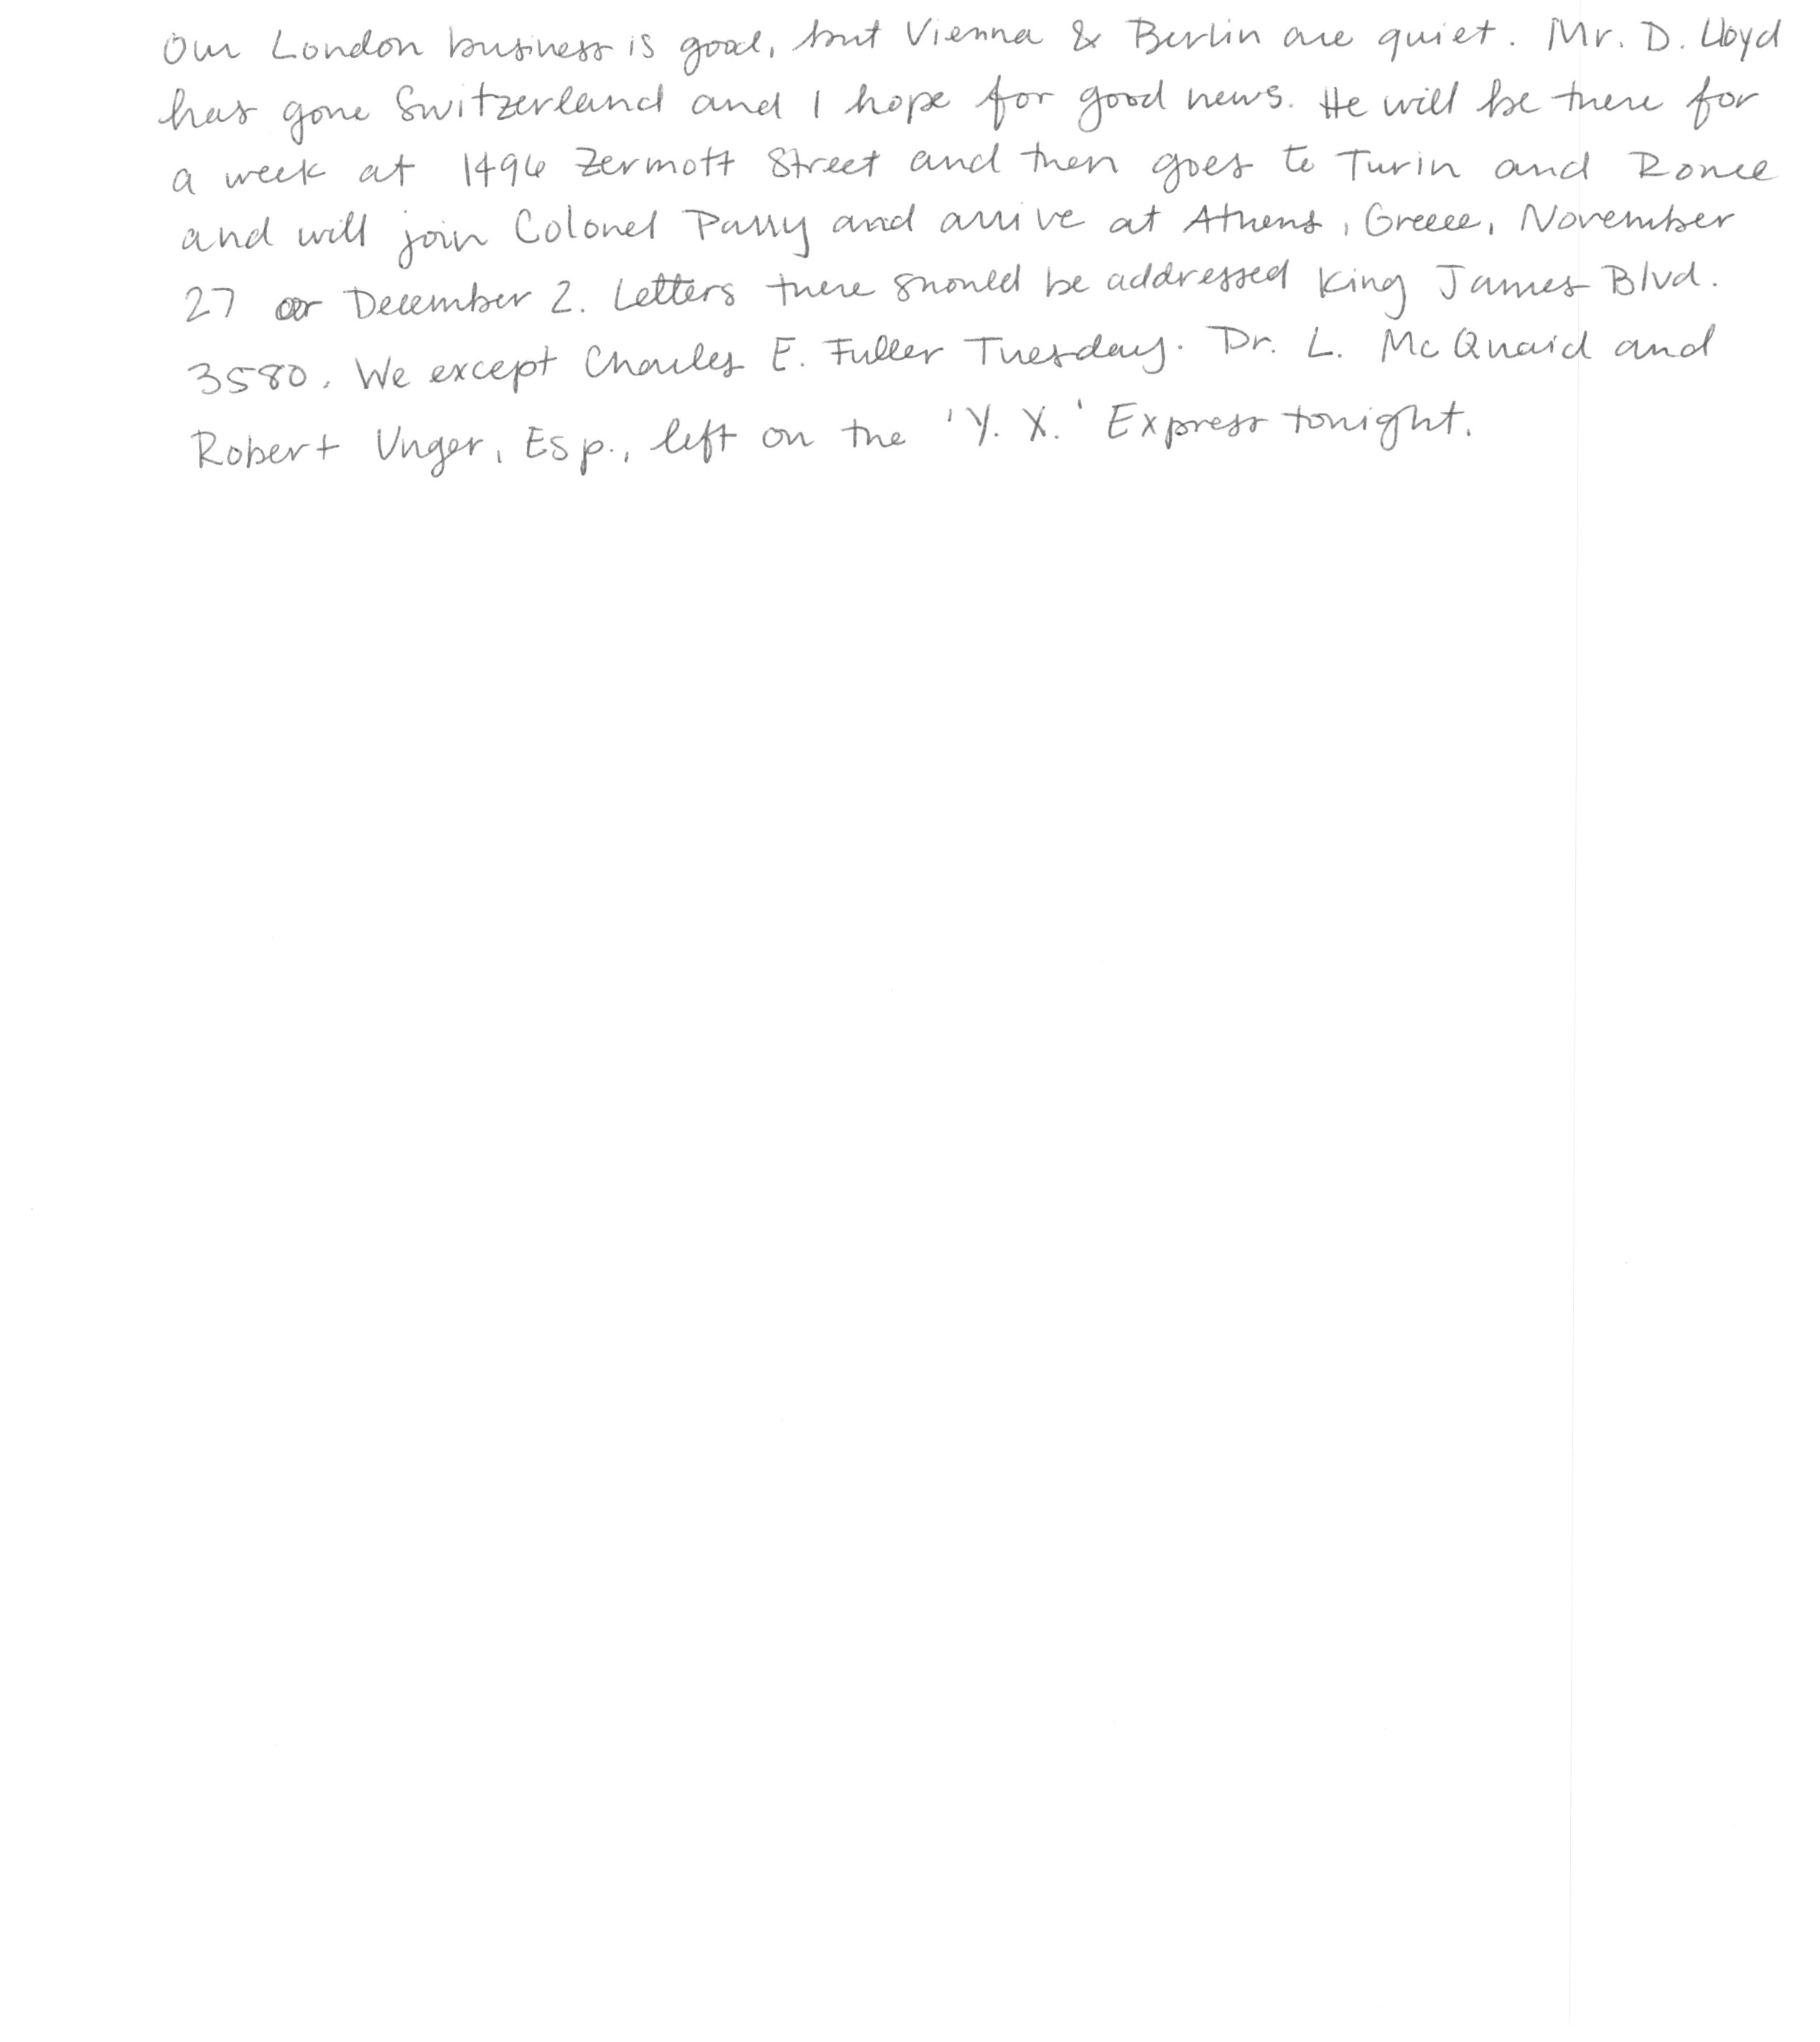 Our London business is good, but Vienna & Berlin are quiet. Mr. D. Lloyd
has gone Switzerland and I hope for good news. He will be there for
a week at 1496 Zermott Street and then goes to Turin and Rome
and will join Colonel Parry and arrive at Athens, Greece, November
27 or December 2. Letters there should be addressed King James Blvd.
3580. We except Charles E. Fuller Tuesday. Dr. L. McQuaid and
Robert Unger, Esp., left on the 'Y. X.' Express tonight.